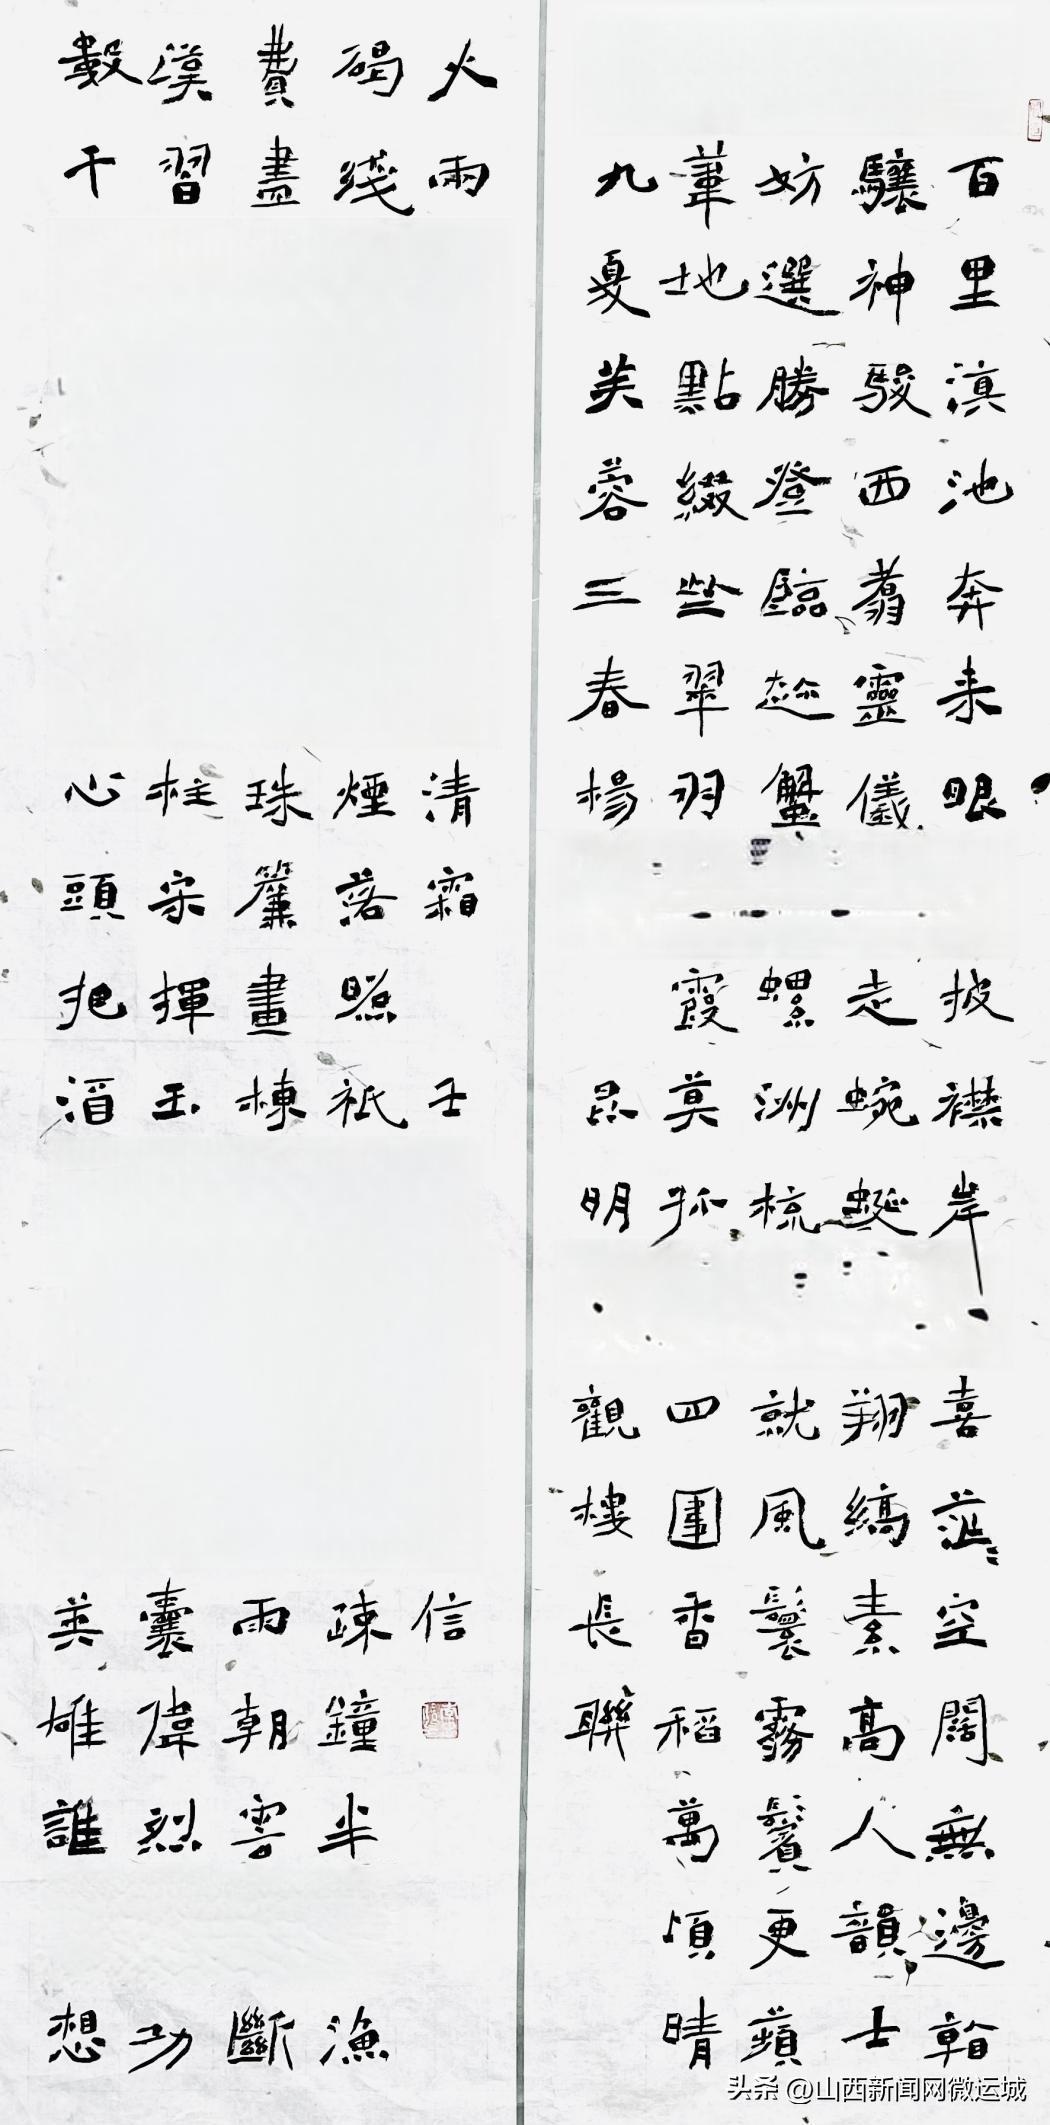 百里滇池奔来眼披襟岸喜茫〻空闊無邊
驤神駿西翥靈儀走蜿蜒翔縞素高人韻士
妨選勝登臨趂蟹螺洲梳就風鬟霧鬢更蘋
葦地點綴些翠羽霞莫孤四圍香稻萬頃晴
九夏芙蓉三春楊昆明觀樓長聯
數千心頭把酒英雄誰想
漢習柱宋揮玉囊偉烈功
費盡珠簾畫棟雨朝雲斷
碣煙落照祇疎鐘半漁
火兩清霜壬信
头条 @山西新闻网微运城